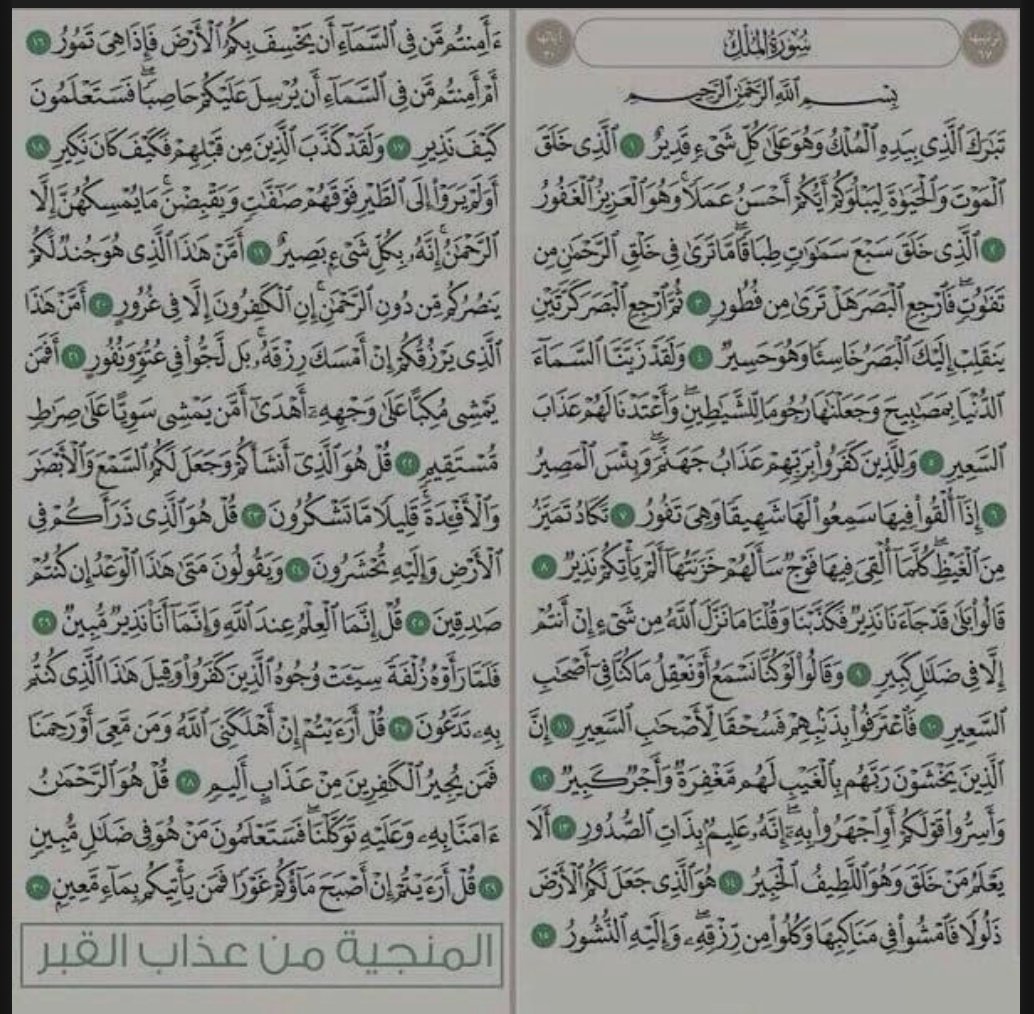 ترتيبها ٦٧
سُورَةُ الْمُلْكِ
آياتها ٣٠
بِسْمِ ٱللَّهِ ٱلرَّحْمَٰنِ ٱلرَّحِيمِ
تَبَٰرَكَ ٱلَّذِى بِيَدِهِ ٱلْمُلْكُ وَهُوَ عَلَىٰ كُلِّ شَىْءٍ قَدِيرٌ ١ ٱلَّذِى خَلَقَ
ٱلْمَوْتَ وَٱلْحَيَوٰةَ لِيَبْلُوَكُمْ أَيُّكُمْ أَحْسَنُ عَمَلًا ۚ وَهُوَ ٱلْعَزِيزُ ٱلْغَفُورُ
٢ ٱلَّذِى خَلَقَ سَبْعَ سَمَٰوَٰتٍ طِبَاقًا ۖ مَّا تَرَىٰ فِى خَلْقِ ٱلرَّحْمَٰنِ مِن
تَفَٰوُتٍ ۖ فَٱرْجِعِ ٱلْبَصَرَ هَلْ تَرَىٰ مِن فُطُورٍ ٣ ثُمَّ ٱرْجِعِ ٱلْبَصَرَ كَرَّتَيْنِ
يَنقَلِبْ إِلَيْكَ ٱلْبَصَرُ خَاسِئًا وَهُوَ حَسِيرٌ ٤ وَلَقَدْ زَيَّنَّا ٱلسَّمَآءَ
ٱلدُّنْيَا بِمَصَٰبِيحَ وَجَعَلْنَٰهَا رُجُومًا لِّلشَّيَٰطِينِ ۖ وَأَعْتَدْنَا لَهُمْ عَذَابَ
ٱلسَّعِيرِ ٥ وَلِلَّذِينَ كَفَرُوا۟ بِرَبِّهِمْ عَذَابُ جَهَنَّمَ ۖ وَبِئْسَ ٱلْمَصِيرُ
٦ إِذَآ أُلْقُوا۟ فِيهَا سَمِعُوا۟ لَهَا شَهِيقًا وَهِىَ تَفُورُ ٧ تَكَادُ تَمَيَّزُ
مِنَ ٱلْغَيْظِ ۖ كُلَّمَآ أُلْقِىَ فِيهَا فَوْجٌ سَأَلَهُمْ خَزَنَتُهَآ أَلَمْ يَأْتِكُمْ نَذِيرٌ ٨
قَالُوا۟ بَلَىٰ قَدْ جَآءَنَا نَذِيرٌ فَكَذَّبْنَا وَقُلْنَا مَا نَزَّلَ ٱللَّهُ مِن شَىْءٍ إِنْ أَنتُمْ
إِلَّا فِى ضَلَٰلٍ كَبِيرٍ ٩ وَقَالُوا۟ لَوْ كُنَّا نَسْمَعُ أَوْ نَعْقِلُ مَا كُنَّا فِىٓ أَصْحَٰبِ
ٱلسَّعِيرِ ١٠ فَٱعْتَرَفُوا۟ بِذَنۢبِهِمْ فَسُحْقًا لِّأَصْحَٰبِ ٱلسَّعِيرِ ١١ إِنَّ
ٱلَّذِينَ يَخْشَوْنَ رَبَّهُم بِٱلْغَيْبِ لَهُم مَّغْفِرَةٌ وَأَجْرٌ كَبِيرٌ ١٢
وَأَسِرُّوا۟ قَوْلَكُمْ أَوِ ٱجْهَرُوا۟ بِهِۦٓ ۖ إِنَّهُۥ عَلِيمٌۢ بِذَاتِ ٱلصُّدُورِ ١٣ أَلَا
يَعْلَمُ مَنْ خَلَقَ وَهُوَ ٱللَّطِيفُ ٱلْخَبِيرُ ١٤ هُوَ ٱلَّذِى جَعَلَ لَكُمُ ٱلْأَرْضَ
ذَلُولًا فَٱمْشُوا۟ فِى مَنَاكِبِهَا وَكُلُوا۟ مِن رِّزْقِهِۦ ۖ وَإِلَيْهِ ٱلنُّشُورُ ١٥
ءَأَمِنتُم مَّن فِى ٱلسَّمَآءِ أَن يَخْسِفَ بِكُمُ ٱلْأَرْضَ فَإِذَا هِىَ تَمُورُ ١٦
أَمْ أَمِنتُم مَّن فِى ٱلسَّمَآءِ أَن يُرْسِلَ عَلَيْكُمْ حَاصِبًا ۖ فَسَتَعْلَمُونَ
كَيْفَ نَذِيرِ ١٧ وَلَقَدْ كَذَّبَ ٱلَّذِينَ مِن قَبْلِهِمْ فَكَيْفَ كَانَ نَكِيرِ ١٨
أَوَلَمْ يَرَوْا۟ إِلَى ٱلطَّيْرِ فَوْقَهُمْ صَٰٓفَّٰتٍ وَيَقْبِضْنَ ۚ مَا يُمْسِكُهُنَّ إِلَّا
ٱلرَّحْمَٰنُ ۚ إِنَّهُۥ بِكُلِّ شَىْءٍۭ بَصِيرٌ ١٩ أَمَّنْ هَٰذَا ٱلَّذِى هُوَ جُندٌ لَّكُمْ
يَنصُرُكُم مِّن دُونِ ٱلرَّحْمَٰنِ ۚ إِنِ ٱلْكَٰفِرُونَ إِلَّا فِى غُرُورٍ ٢٠ أَمَّنْ هَٰذَا
ٱلَّذِى يَرْزُقُكُمْ إِنْ أَمْسَكَ رِزْقَهُۥ ۚ بَل لَّجُّوا۟ فِى عُتُوٍّ وَنُفُورٍ ٢١ أَفَمَن
يَمْشِى مُكِبًّا عَلَىٰ وَجْهِهِۦٓ أَهْدَىٰٓ أَمَّن يَمْشِى سَوِيًّا عَلَىٰ صِرَٰطٍ
مُّسْتَقِيمٍ ٢٢ قُلْ هُوَ ٱلَّذِىٓ أَنشَأَكُمْ وَجَعَلَ لَكُمُ ٱلسَّمْعَ وَٱلْأَبْصَٰرَ
وَٱلْأَفْـِٔدَةَ ۖ قَلِيلًا مَّا تَشْكُرُونَ ٢٣ قُلْ هُوَ ٱلَّذِى ذَرَأَكُمْ فِى
ٱلْأَرْضِ وَإِلَيْهِ تُحْشَرُونَ ٢٤ وَيَقُولُونَ مَتَىٰ هَٰذَا ٱلْوَعْدُ إِن كُنتُمْ
صَٰدِقِينَ ٢٥ قُلْ إِنَّمَا ٱلْعِلْمُ عِندَ ٱللَّهِ وَإِنَّمَآ أَنَا۠ نَذِيرٌ مُّبِينٌ ٢٦
فَلَمَّا رَأَوْهُ زُلْفَةً سِيٓـَٔتْ وُجُوهُ ٱلَّذِينَ كَفَرُوا۟ وَقِيلَ هَٰذَا ٱلَّذِى كُنتُم
بِهِۦ تَدَّعُونَ ٢٧ قُلْ أَرَءَيْتُمْ إِنْ أَهْلَكَنِىَ ٱللَّهُ وَمَن مَّعِىَ أَوْ رَحِمَنَا
فَمَن يُجِيرُ ٱلْكَٰفِرِينَ مِنْ عَذَابٍ أَلِيمٍ ٢٨ قُلْ هُوَ ٱلرَّحْمَٰنُ
ءَامَنَّا بِهِۦ وَعَلَيْهِ تَوَكَّلْنَا ۖ فَسَتَعْلَمُونَ مَنْ هُوَ فِى ضَلَٰلٍ مُّبِينٍ
٢٩ قُلْ أَرَءَيْتُمْ إِنْ أَصْبَحَ مَآؤُكُمْ غَوْرًا فَمَن يَأْتِيكُم بِمَآءٍ مَّعِينٍۭ ٣٠
المنجية من عذاب القبر